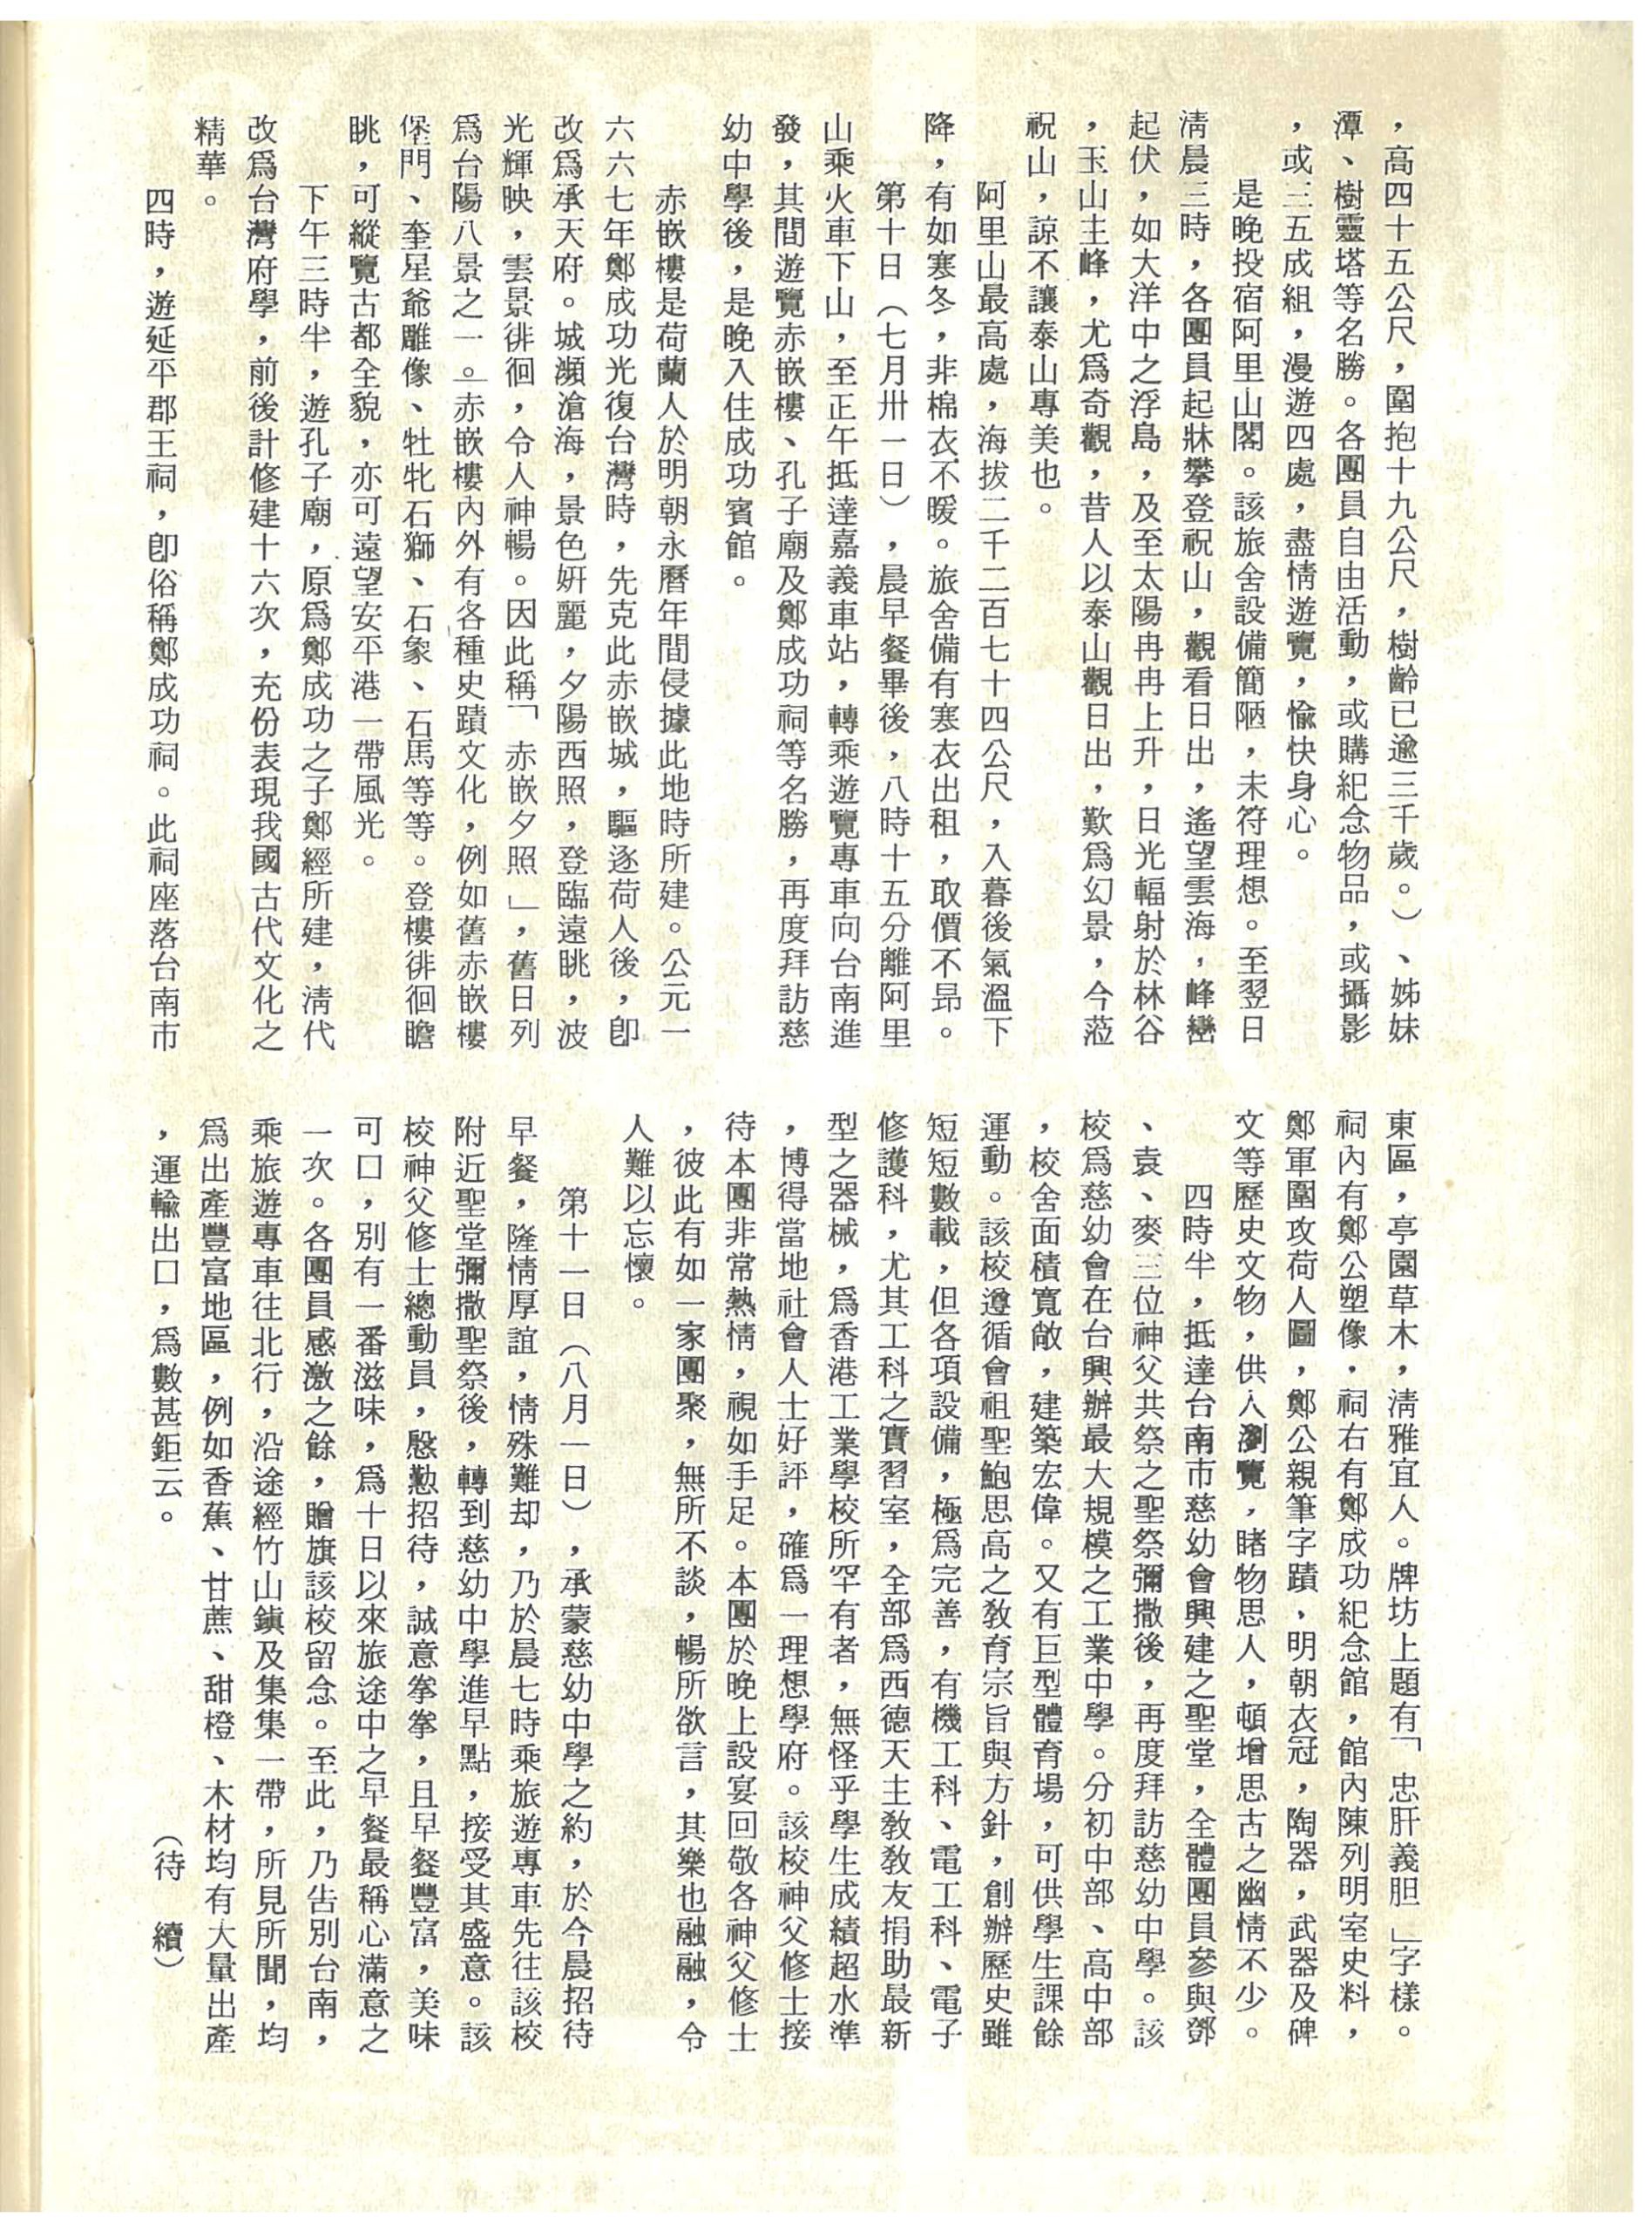 ，高四十五公尺，圍抱十九公尺，樹齡已逾三千歲。）、姊妹
潭、樹靈塔等名勝。各團員自由活動，或購紀念物品，或攝影
，或三五成組，漫遊四處，盡情遊覽，愉快身心。
是晚投宿阿里山閣。該旅舍設備簡陋，未符理想。至翌日
淸晨三時，各團員起牀攀登祝山，觀看日出，遙望雲海，峰巒
起伏，如大洋中之浮島，及至太陽冉冉上升，日光輻射於林谷
，玉山主峰，尤爲奇觀，昔人以泰山觀日出，歎爲幻景，今蒞
祝山，諒不讓泰山專美也。
阿里山最高處，海拔二千二百七十四公尺，入暮後氣溫下
降，有如寒冬，非棉衣不暖。旅舍備有寒衣出租，取價不昂。
第十日（七月卅一日），晨早餐畢後，八時十五分離阿里
山乘火車下山，至正午抵達嘉義車站，轉乘遊覽專車向台南進
發，其間遊覽赤嵌樓、孔子廟及鄭成功祠等名勝，再度拜訪慈
幼中學後，是晚入住成功賓館。
赤嵌樓是荷蘭人於明朝永曆年間侵據此地時所建。公元一
六六七年鄭成功光復台灣時，先克此赤嵌城，驅逐荷人後，卽
改爲承天府。城瀕滄海，景色姸麗，夕陽西照，登臨遠眺，波
光輝映，雲景徘徊，令人神暢。因此稱「赤嵌夕照」，舊日列
爲台陽八景之一。赤嵌樓內外有各種史蹟文化，例如舊赤嵌樓
堡門、奎星爺雕像、牡牝石獅、石象、石馬等等。登樓徘徊瞻
眺，可縱覽古都全貌，亦可遠望安平港一帶風光。
下午三時半，遊孔子廟，原爲鄭成功之子鄭經所建，淸代
改爲台灣府學，前後計修建十六次，充份表現我國古代文化之
精華。
四時，遊延平郡王祠，卽俗稱鄭成功祠。此祠座落台南市
東區，亭園草木，淸雅宜人。牌坊上題有「忠肝義胆」字樣。
祠內有鄭公塑像，祠右有鄭成功紀念館，館內陳列明室史料，
鄭軍圍攻荷人圖，鄭公親筆字蹟，明朝衣冠，陶器，武器及碑
文等歷史文物，供人瀏覽，睹物思人，頓增思古之幽情不少。
四時半，抵達台南市慈幼會興建之聖堂，全體團員參與鄧
、袁、麥三位神父共祭之聖祭彌撒後，再度拜訪慈幼中學。該
校爲慈幼會在台興辦最大規模之工業中學。分初中部、高中部
，校舍面積寬敞，建築宏偉。又有巨型體育場，可供學生課餘
運動。該校遵循會祖聖鮑思高之教育宗旨與方針，創辦歷史雖
短短數載，但各項設備，極爲完善，有機工科、電工科、電子
修護科，尤其工科之實習室，全部爲西德天主教教友捐助最新
型之器械，爲香港工業學校所罕有者，無怪乎學生成績超水準
，博得當地社會人士好評，確爲一理想學府。該校神父修士接
待本團非常熱情，視如手足。本團於晚上設宴回敬各神父修士
，彼此有如一家團聚，無所不談，暢所欲言，其樂也融融，令
人難以忘懷。
第十一日（八月一日），承蒙慈幼中學之約，於今晨招待
早餐，隆情厚誼，情殊難却，乃於晨七時乘旅遊專車先往該校
附近聖堂彌撒聖祭後，轉到慈幼中學進早點，接受其盛意。該
校神父修士總動員，慇懃招待，誠意拳拳，且早餐豐富，美味
可口，別有一番滋味，爲十日以來旅途中之早餐最稱心滿意之
一次。各團員感激之餘，贈旗該校留念。至此，乃告別台南，
乘旅遊專車往北行，沿途經竹山鎭及集集一帶，所見所聞，均
爲出產豐富地區，例如香蕉、甘蔗、甜橙、木材均有大量出產
，運輸出口，爲數甚鉅云。
（待　續）